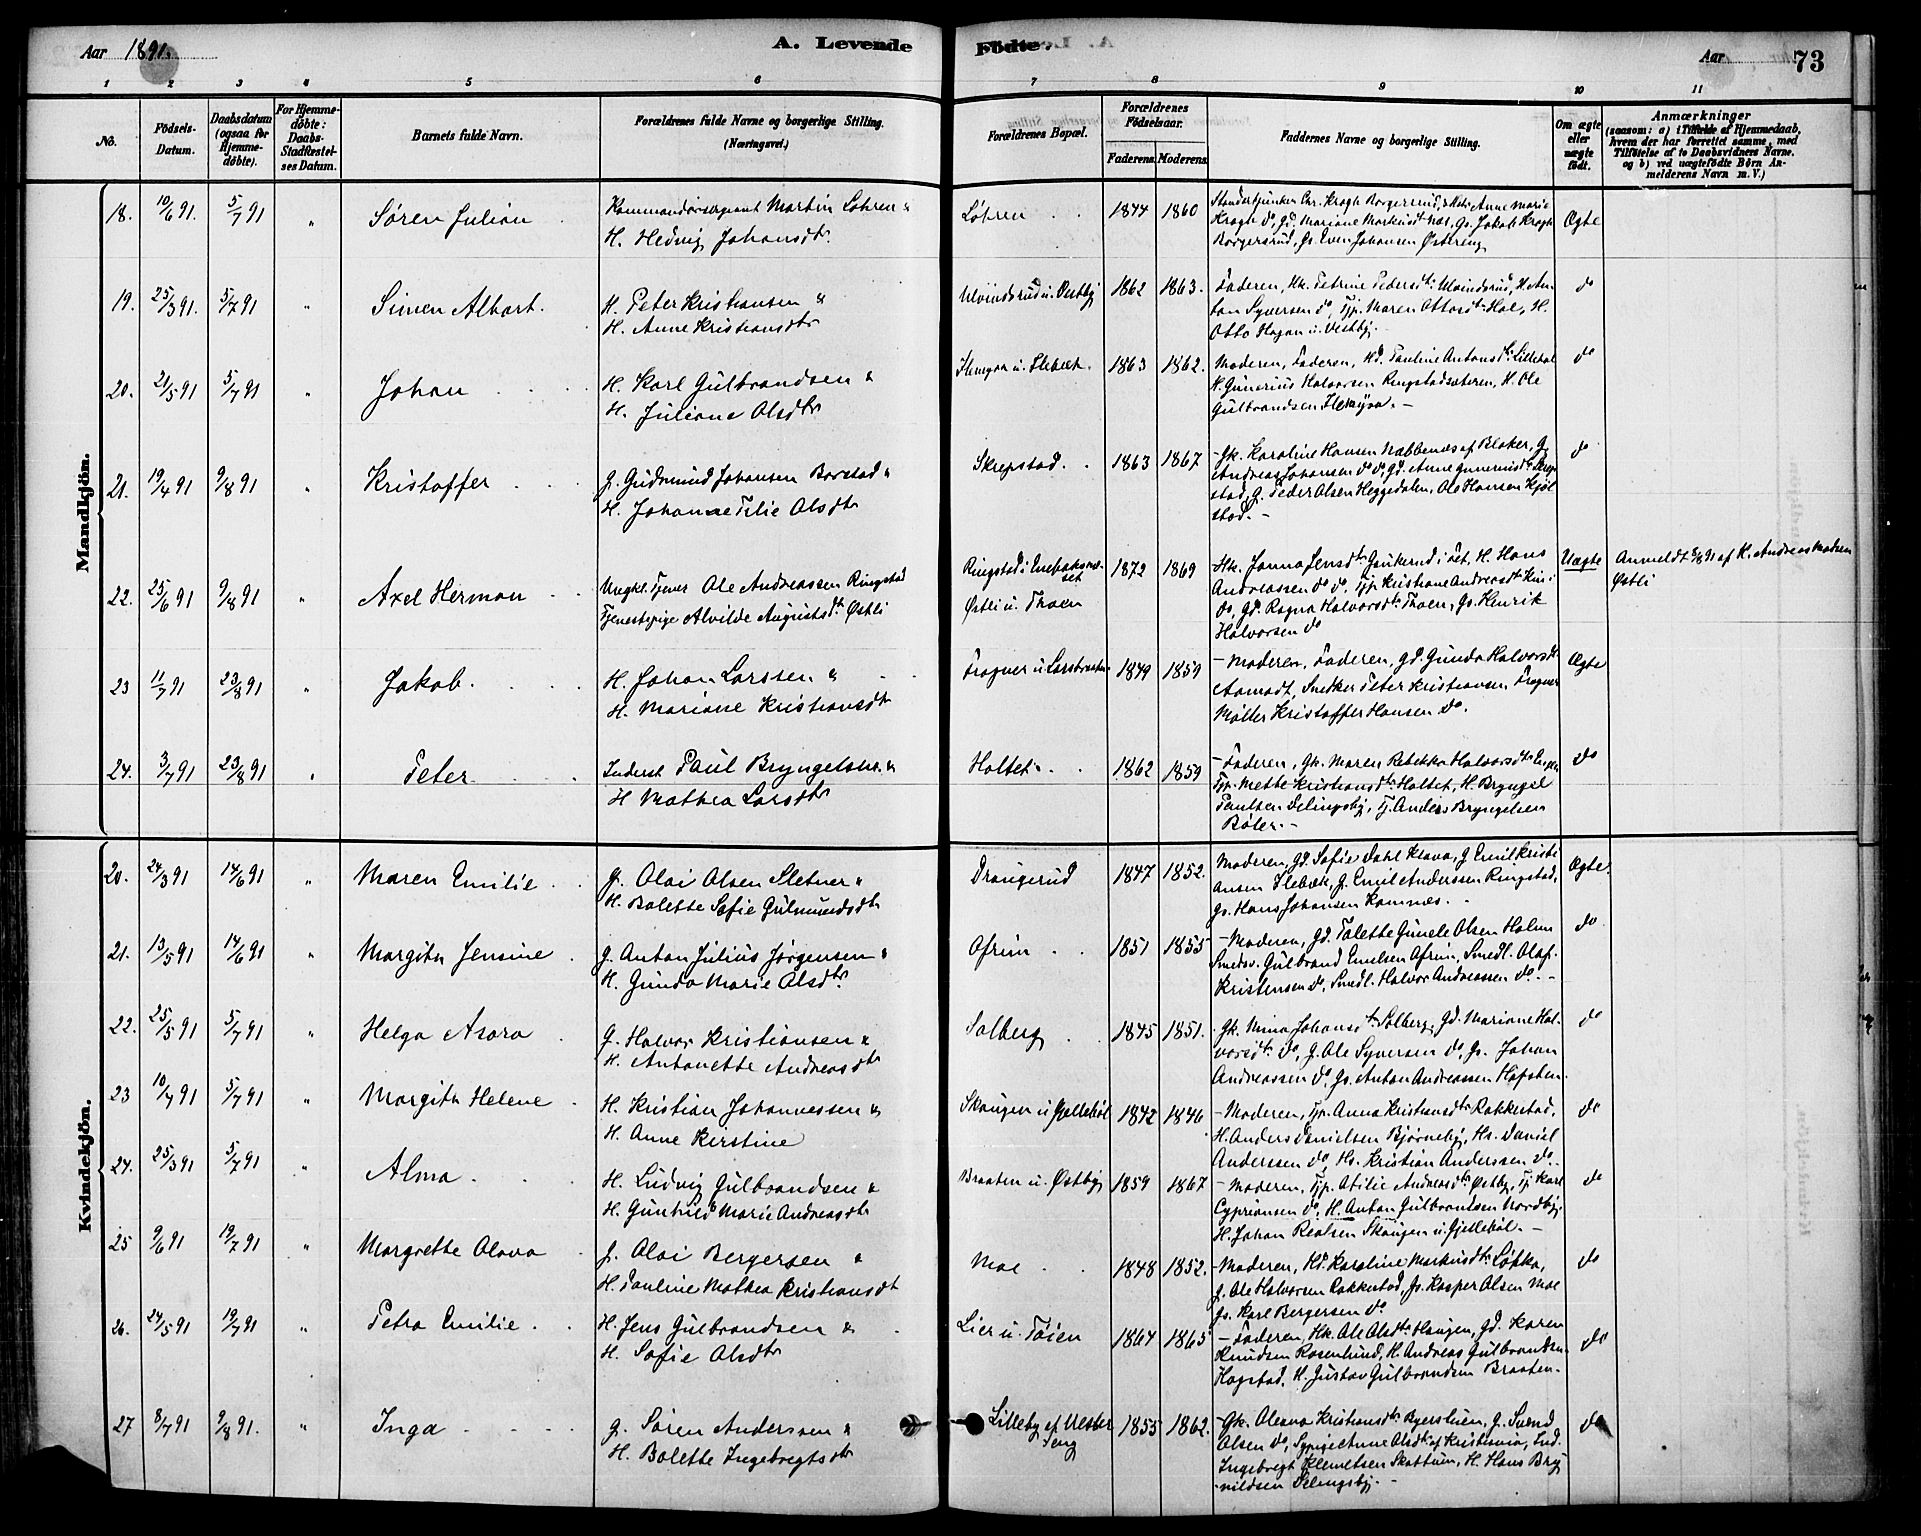 Aar 1891.
A. Levende
Födte.
Aar
73
1 2 3 4 5 6 7 8 9 10 11
No.
Födsels-
Datum.
Daabsdatum
(ogsaa for
Hjemme-
döbte).
For Hjemme-
döbte:
Daabs-
Stadfæstel-
ses Datum.
Barnets fulde Navn.
Forældrenes fulde Navne og borgerlige Stilling.
(Næringsvei.)
Forældrenes Bopæl.
Forældrenes
Födselsaar.
Faderens. Moderens.
Faddernes Navne og borgerlige Stilling.
Om ægte
eller
uægte
födt.
Anmærkninger
(saasom: a) Tilfælde af Hjemmedaab,
hvem der har forrettet samme, med
Tilföielse af to Daabsvidners Navne,
og b) ved uægtefödte Börn An-
melderens Navn m. V.)
Mandkjön.
18. 10/6 91. 5/7 91 " Søren Julian
Kommandersergeant Martin Løhren &
H. Hedvig Johansdtr.
Løhren 1844 1860
Borgersrud, Gs. Even Johansen Østereng
Ægte
19. 25/3 91 5/7 91 " Simen Albart.
H. Peter Kristiansen &
H. Anne Kristiansdtr
Ulvindsrud u. Vestby 1862 1863.
Faderen, Hk. Petrine Pedersdtr Ulvindsrud,
Syversen do, Tjp. Maren Ottosdtr Hol, H.
Otto Hagan u. Vestby.
do
20. 21/5 91 5/7 91 " Johan
H. Karl Gulbrandsen &
H. Juliane Olsdtr
1863 1862.
Moderen, Faderen, Pauline Antonsdtr
H. Gunerius Halvorsen Ringstadsæteren, H. Ole
Gulbrandsen
do
21. 19/4 91 9/8 91 " Kristoffer
G. Gudmund Johansen Borstad &
H. Johanne Tilie Olsdtr
Skrepstad. 1863 1867
Gk. Karoline Hansen Næbbenæs af Blaker, G.
Andreas Johansen do do, Gd. Anne
stad, G. Peder Olsen Heggedalen, Ole Hansen Kjøl
stad.
do
22. 25/6 91 9/8 91 " Axel Herman
Ungkl. Tjener Ole Andreassen Ringstad
Tjenestepige Alvilde Augustsdtr Østli
Ringstad i Enebaksnæ-
set
Østli u. Thoen
1872 1869
Hk. Janna Jensdtr i Fet, H. Hans
Andreassen do do, Tjp. Kristiane Andreasdtr
do, Gd. Ragna Halvorsdtr Thoen, Gs. Henrik
Halvorsen do
Uægte
Anmeldt 8/8 91 af H. Andreas Madsen
Østli
23 11/7 91 23/8 91 " Jakob.
H. Johan Larssen &
H. Mariane Kristiansdtr
Fragner u. 1849 1859
Moderen, Faderen, Gd. Gunda Halvorsdtr
Aamodt, Snedker Peter Kristiansen, Fragner
Møller Kristoffer Hansen do.
Ægte
24. 3/7 91 23/8 91 " Peter
Inderst Paul Bryngelsen. &
H Mathea Larsdtr
Holtet 1862 1859
Faderen, Gk. Maren Rebekka Halvorsdtr
Tjp. Mette Kristiansdtr Holtet, H. Bryngel
Paulsen Delingsby, Tj. Anders Bryngelsen
Bøler.
do
Kvindekjön.
20. 24/3 91 14/6 91 " Maren Emilie
G. Olai Olsen Sletner &
H. Bolette Sofie Gulmundsdtr
Draugerud 1847 1852.
Moderen, Gd. Sofie Dahl Klova, G Emil Kristi
ansen Flebæk, G. Emil Anderssen Ringstad,
Gs. Hans Johansen Kamnæs.
Ægte.
21. 13/5 91 14/6 91 " Margitha Jensine
G. Anton Julius Jørgensen &
H. Gunda Marie Olsdtr.
Ofrim 1851 1855
Moderen, Gd. Talette Gunele Olsen Holum
Smedsv. Gulbrand Emelsen Ofrim, Smedl. Olaf
Kristensen do, Smedl. Halvor Andreassen do.
do
22. 25/5 91 5/7 91 " Helga Asora
G. Halvor Kristiansen &
H. Antonette Andreasdtr
Solberg 1845 1851.
Gk. Mina Johansdtr Solberg, Gd. Mariane Hal-
vorsdtr do, G. Ole Syversen do, Gs. Johan
Andreassen do, Gs. Anton Andreassen
do
23 10/4 91 5/7 91 " Margith Helene
H. Kristian Johannessen &
H. Anne Kirstine
Skaugen u Gjellebøl 1842 1846
Moderen, Tjp. Anna Kristiansdtr Rakkestad,
H. Anders Danielsen Bjørneby, Hs. Daniel
Anderssen do, Hs. Kristian Anderssen do.
do
24. 25/3 91 5/7 91 " Alma
H. Ludvig Gulbrandsen &
H. Gunhild Marie Andreasdtr
Braaten u. Østby 1859 1867
Moderen, Tjp. Otilie Andreasdtr Østby, Tj. Karl
Cypriansen do, H. Anton Gulbrandsen Nordby,
H. Johan Skaugen u. Gjellebøl.
do
25 9/6 91 19/7 91 " Margrethe Olava
G. Olai Bergersen &
H. Pauline Mathea Kristiansdtr
Moe 1848 1852.
Moderen, Karoline Markusdtr Løkka,
G. Ole Halvorsen Rakkestad, Gs. Kasper Olsen Moe
Gs. Karl Bergersen do
do
26. 24/5 91 19/7 91 " Petra Emilie
H. Jens Gulbrandsen &
H. Sofie Olsdtr
Lier u. Tøien 1864 1865
Faderen, Hk. Ole Olsdtr Haugen, Gd. Karen
Knudsen Rosenlund, H. Andreas Gulbrandsen
Hagstad, H. Gustav Gulbrandsen Braaten.
do
27 8/7 91 9/8 91. " Inga
G. Søren Anderssen &
H. Bolette Ingebregtsdtr
Lilleby af Vester
Teug
1855 1862.
Gk. Oleana Kristiansdtr Byersluen, G. Svend
Olsen do, Sypige Anne Olsdtr af Kristiania, Ind.
Ingebregt Klemetsen Skattum, H. Hans Bry-
nildsen Delingsby.
do